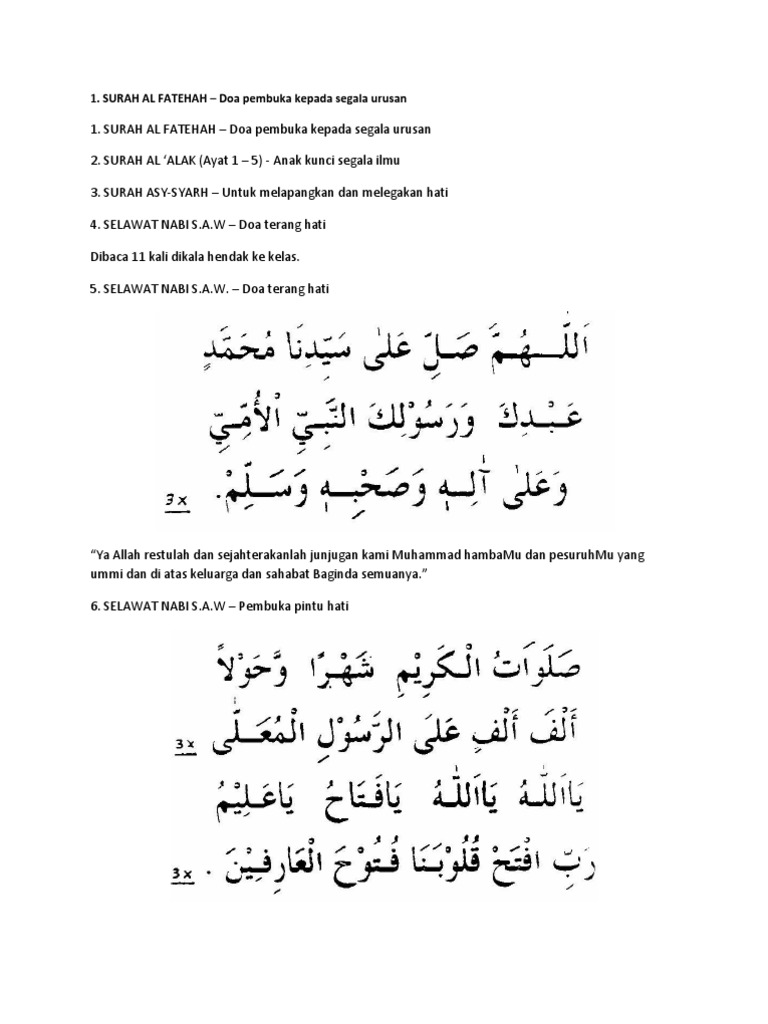 1. SURAH AL FATEHAH – Doa pembuka kepada segala urusan
1. SURAH AL FATEHAH – Doa pembuka kepada segala urusan
2. SURAH AL ‘ALAK (Ayat 1 – 5) - Anak kunci segala ilmu
3. SURAH ASY-SYARH – Untuk melapangkan dan melegakan hati
4. SELAWAT NABI S.A.W – Doa terang hati
Dibaca 11 kali dikala hendak ke kelas.
5. SELAWAT NABI S.A.W. – Doa terang hati
اَللّٰهُمَّ صَلِّ عَلٰى سَيِّدِنَا مُحَمَّدٍ
عَبْدِكَ وَرَسُوْلِكَ النَّبِيِّ الْأُمِّيِّ
وَعَلٰى اٰلِهِ وَصَحْبِهِ وَسَلِّمْ. 3 x
“Ya Allah restulah dan sejahterakanlah junjugan kami Muhammad hambaMu dan pesuruhMu yang
ummi dan di atas keluarga dan sahabat Baginda semuanya.”
6. SELAWAT NABI S.A.W – Pembuka pintu hati
صَلَوَاتُ الْكَرِيْمِ شَهْرًا وَّحَوْلاً
أَلْفَ أَلْفٍ عَلَى الرَّسُوْلِ الْمُعَلّٰى 3 x
يَااَللّٰهُ يَااَللّٰهُ يَافَتَاحُ يَاعَلِيْمُ
رَبِّ افْتَحْ قُلُوْبَنَا فُتُوْحَ الْعَارِفِيْنَ . 3 x